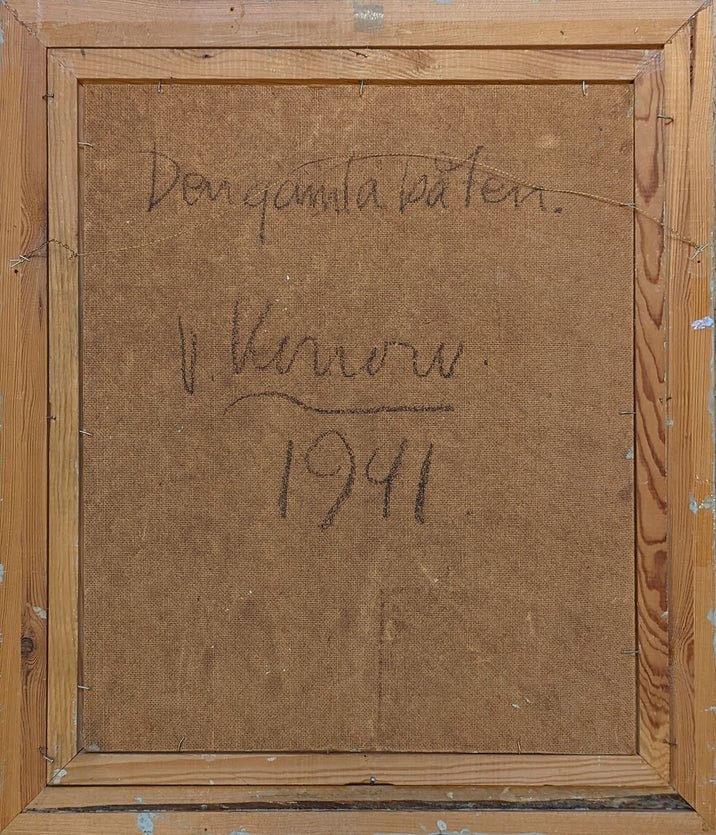 Den gamla båten.
V.
1941.